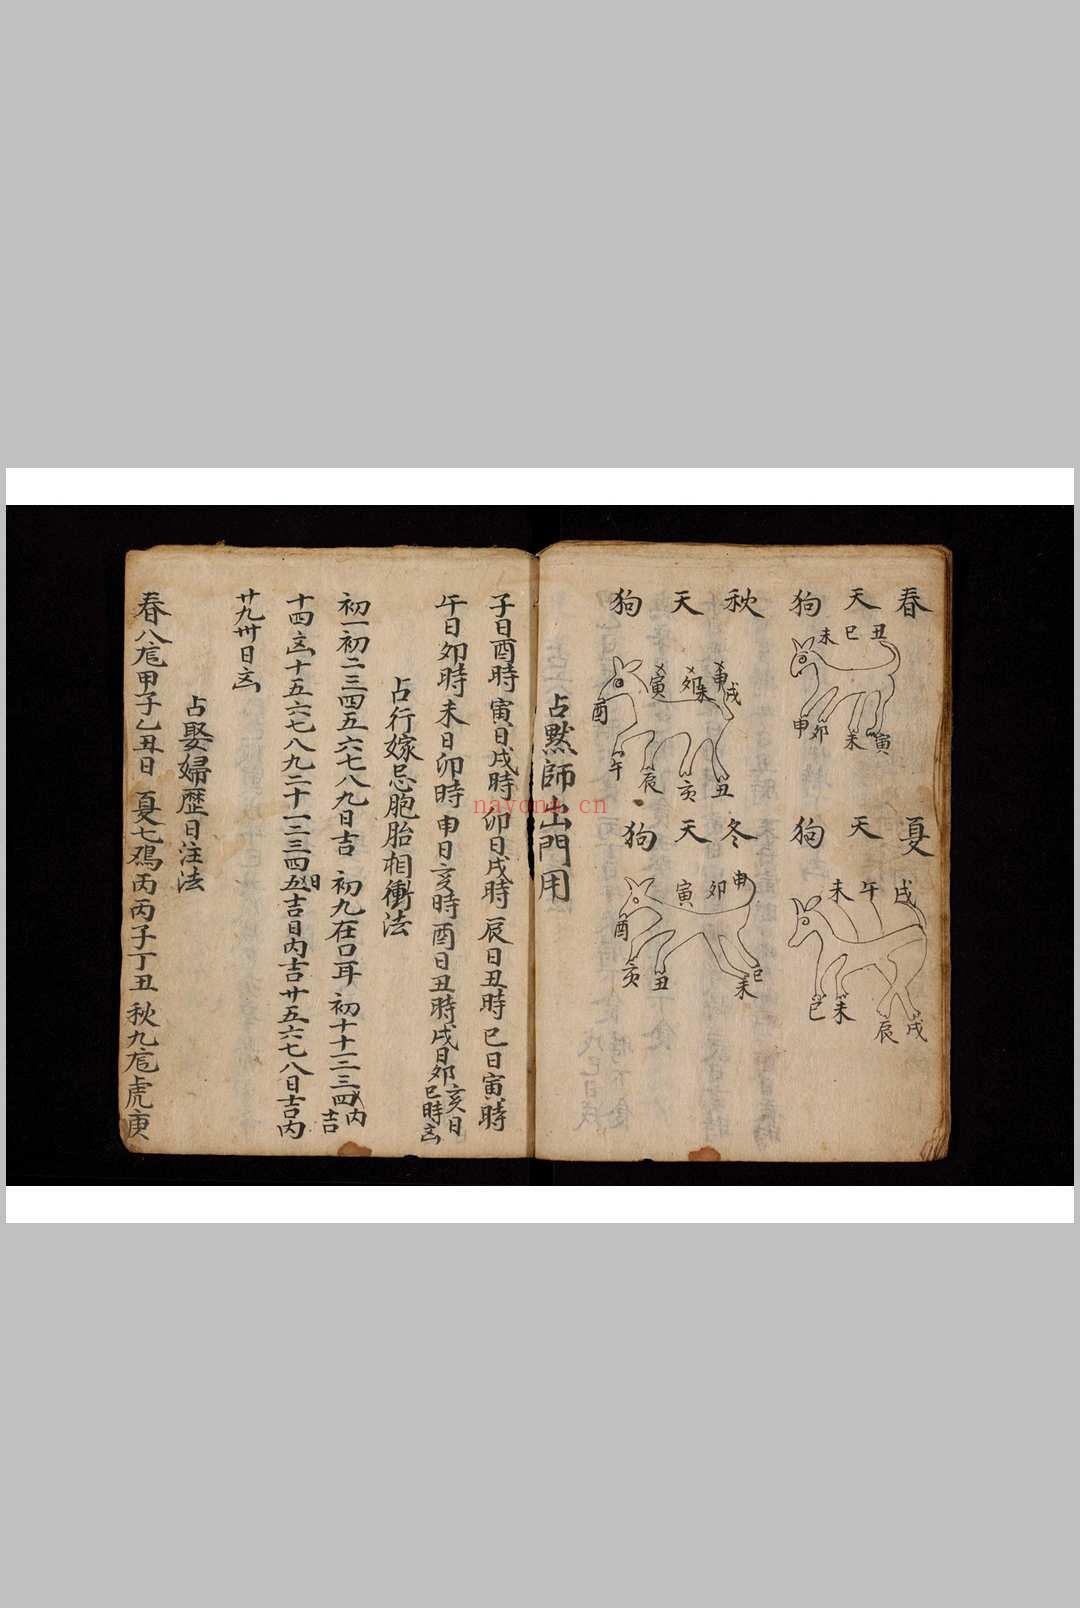 春天狗
丑
巳
未
申
卯
未
寅
夏天狗
戌
午
未
巳
未
辰
戌
秋天狗
申
戌
未
卯
寅
酉
午
辰
亥
丑
冬天狗
申
卯
寅
酉
亥
丑
未
巳
占黙師出門用
子日酉時 寅日戌時 卯日戌時 辰日丑時 巳日寅時
午日卯時 未日卯時 申日亥時 酉日丑時 戌日卯 亥日巳時
占行嫁忌胞胎相衝法
初一初二三四五六七八九日吉 初九在口耳 初十十一二三四内吉
十四 十五六七八九二十一二三四五日吉日内吉廿五六七八日吉内
廿九卅日
占娶婦歴日注法
春八 甲子乙丑日 夏七 丙丙子丁丑 秋九 虎庚
nayong.cn